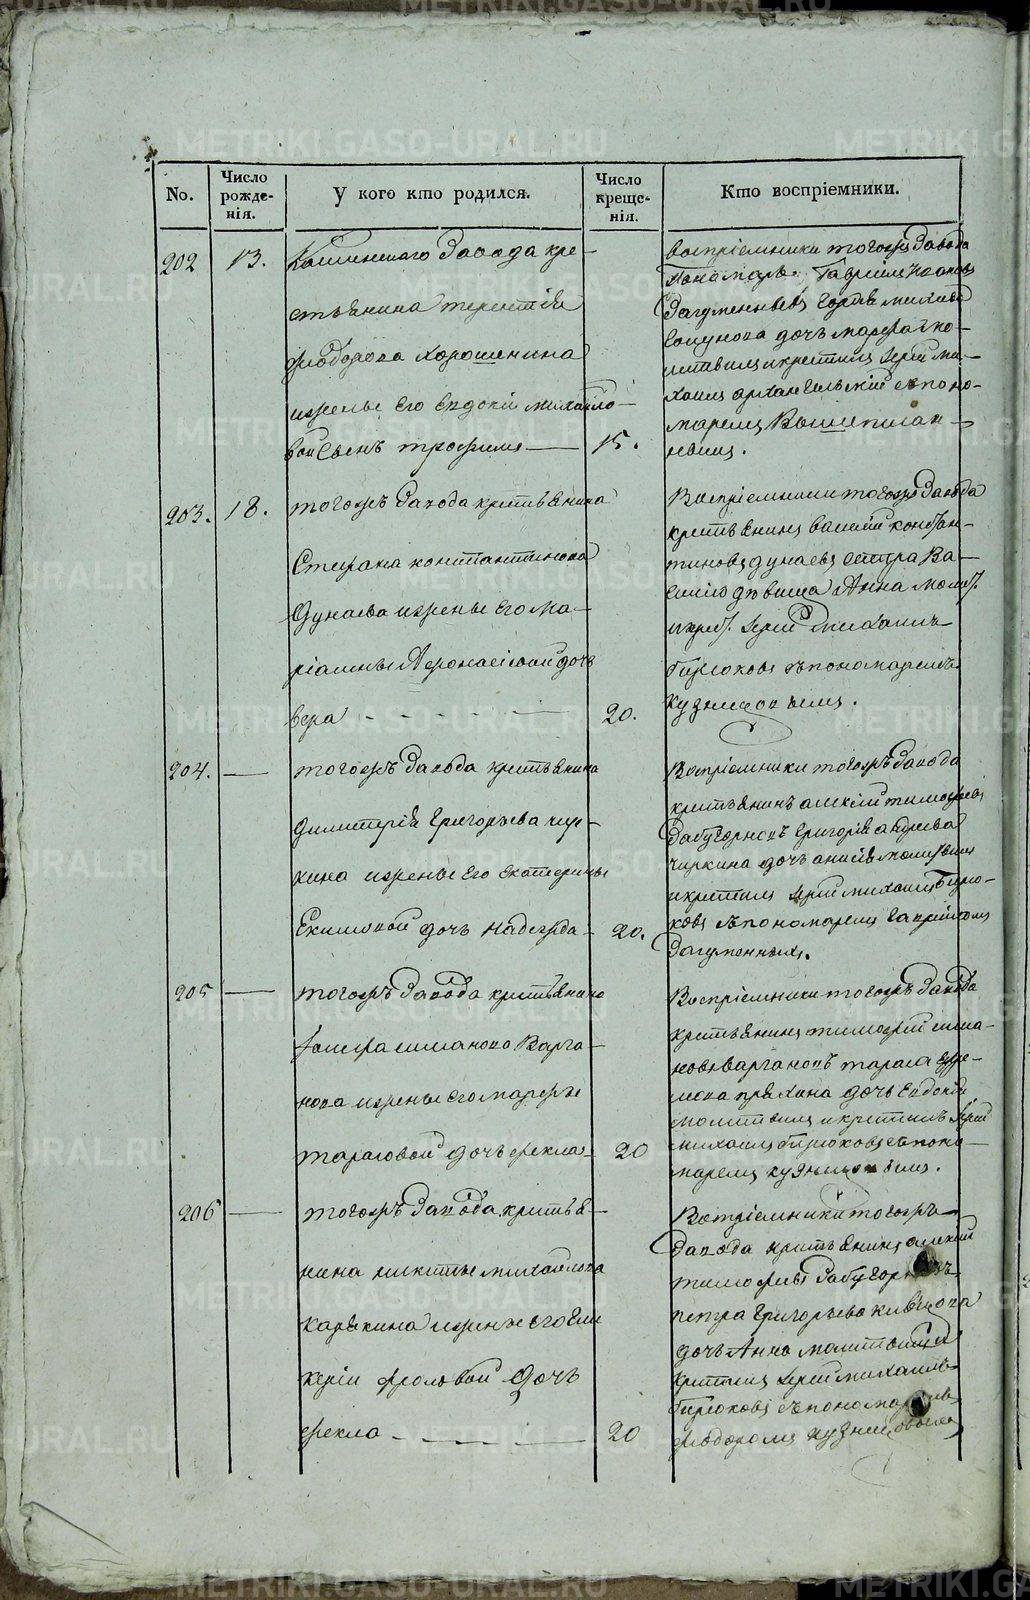 No.
Число рожде-
нія.
У кого кто родился.
Число
креще-
нія.
Кто воспріемники.
202
13.
Завода кре-
стьянина терентія
Хорошенина
и жены его Евдокіи михайло-
вой сынъ трофимъ
15.
воспріемники тогожъ завода
Пономарь Гавріилъ
дочь марфа мо-
литвилъ и крестилъ Іерей ми-
хаилъ съ поно-
маремъ Вышеписан-
нымъ.
203.
18.
тогожъ Завода крестьянина
Стефана константинова
Дунаева и жены его ма-
ріамны Афонасіевой дочь
вера
20.
Воспріемники тогожъ Завода
крестьянинъ василій констан-
тиновъ дунаевъ сестра Ва-
силія девица Анна молит.
и крест. Іерей Михаилъ
Бирюковъ съ пономаремъ
Кузнецовымъ.
204.
тогожъ Завода крестьянина
Димитрія Григорьева чир-
кина и жены его екатерины
Екимовой дочь надежда
20.
Воспріемники тогожъ Завода
крестьянинъ алексій тимофеевъ
Забугорновъ Григорія андреева
чиркина дочь анисія молитвилъ
и крестилъ Іерей михаилъ Бирю-
ковъ съ пономаремъ Гавріиломъ
Загуменныхъ.
205
тогожъ Завода крестьянина
симанова Варга-
нова и жены его марфы
тарасовой дочь фекла
20
Воспріемники тогожъ Завода
крестьянинъ тимофей сима-
новъ Варгановъ тараса ефре-
мова пряхина дочь Евдокія
молитвилъ и крестилъ Іерей
михаилъ Бирюковъ съ поно-
маремъ кузнецовымъ.
206
тогожъ Завода крестья-
нина никиты михайлова
карякина и жены его Гли-
керіи фроловой Дочь
фекла
20
Воспріемники тогожъ
Завода крестьянинъ алексій
тимофеевъ Забугорновъ
петра Григорьева
дочь Анна молитвилъ и
крестилъ Іерей михаилъ
Бирюковъ съ пономаремъ
феодоромъ кузнецовымъ
METRIKI.GASO-URAL.RU